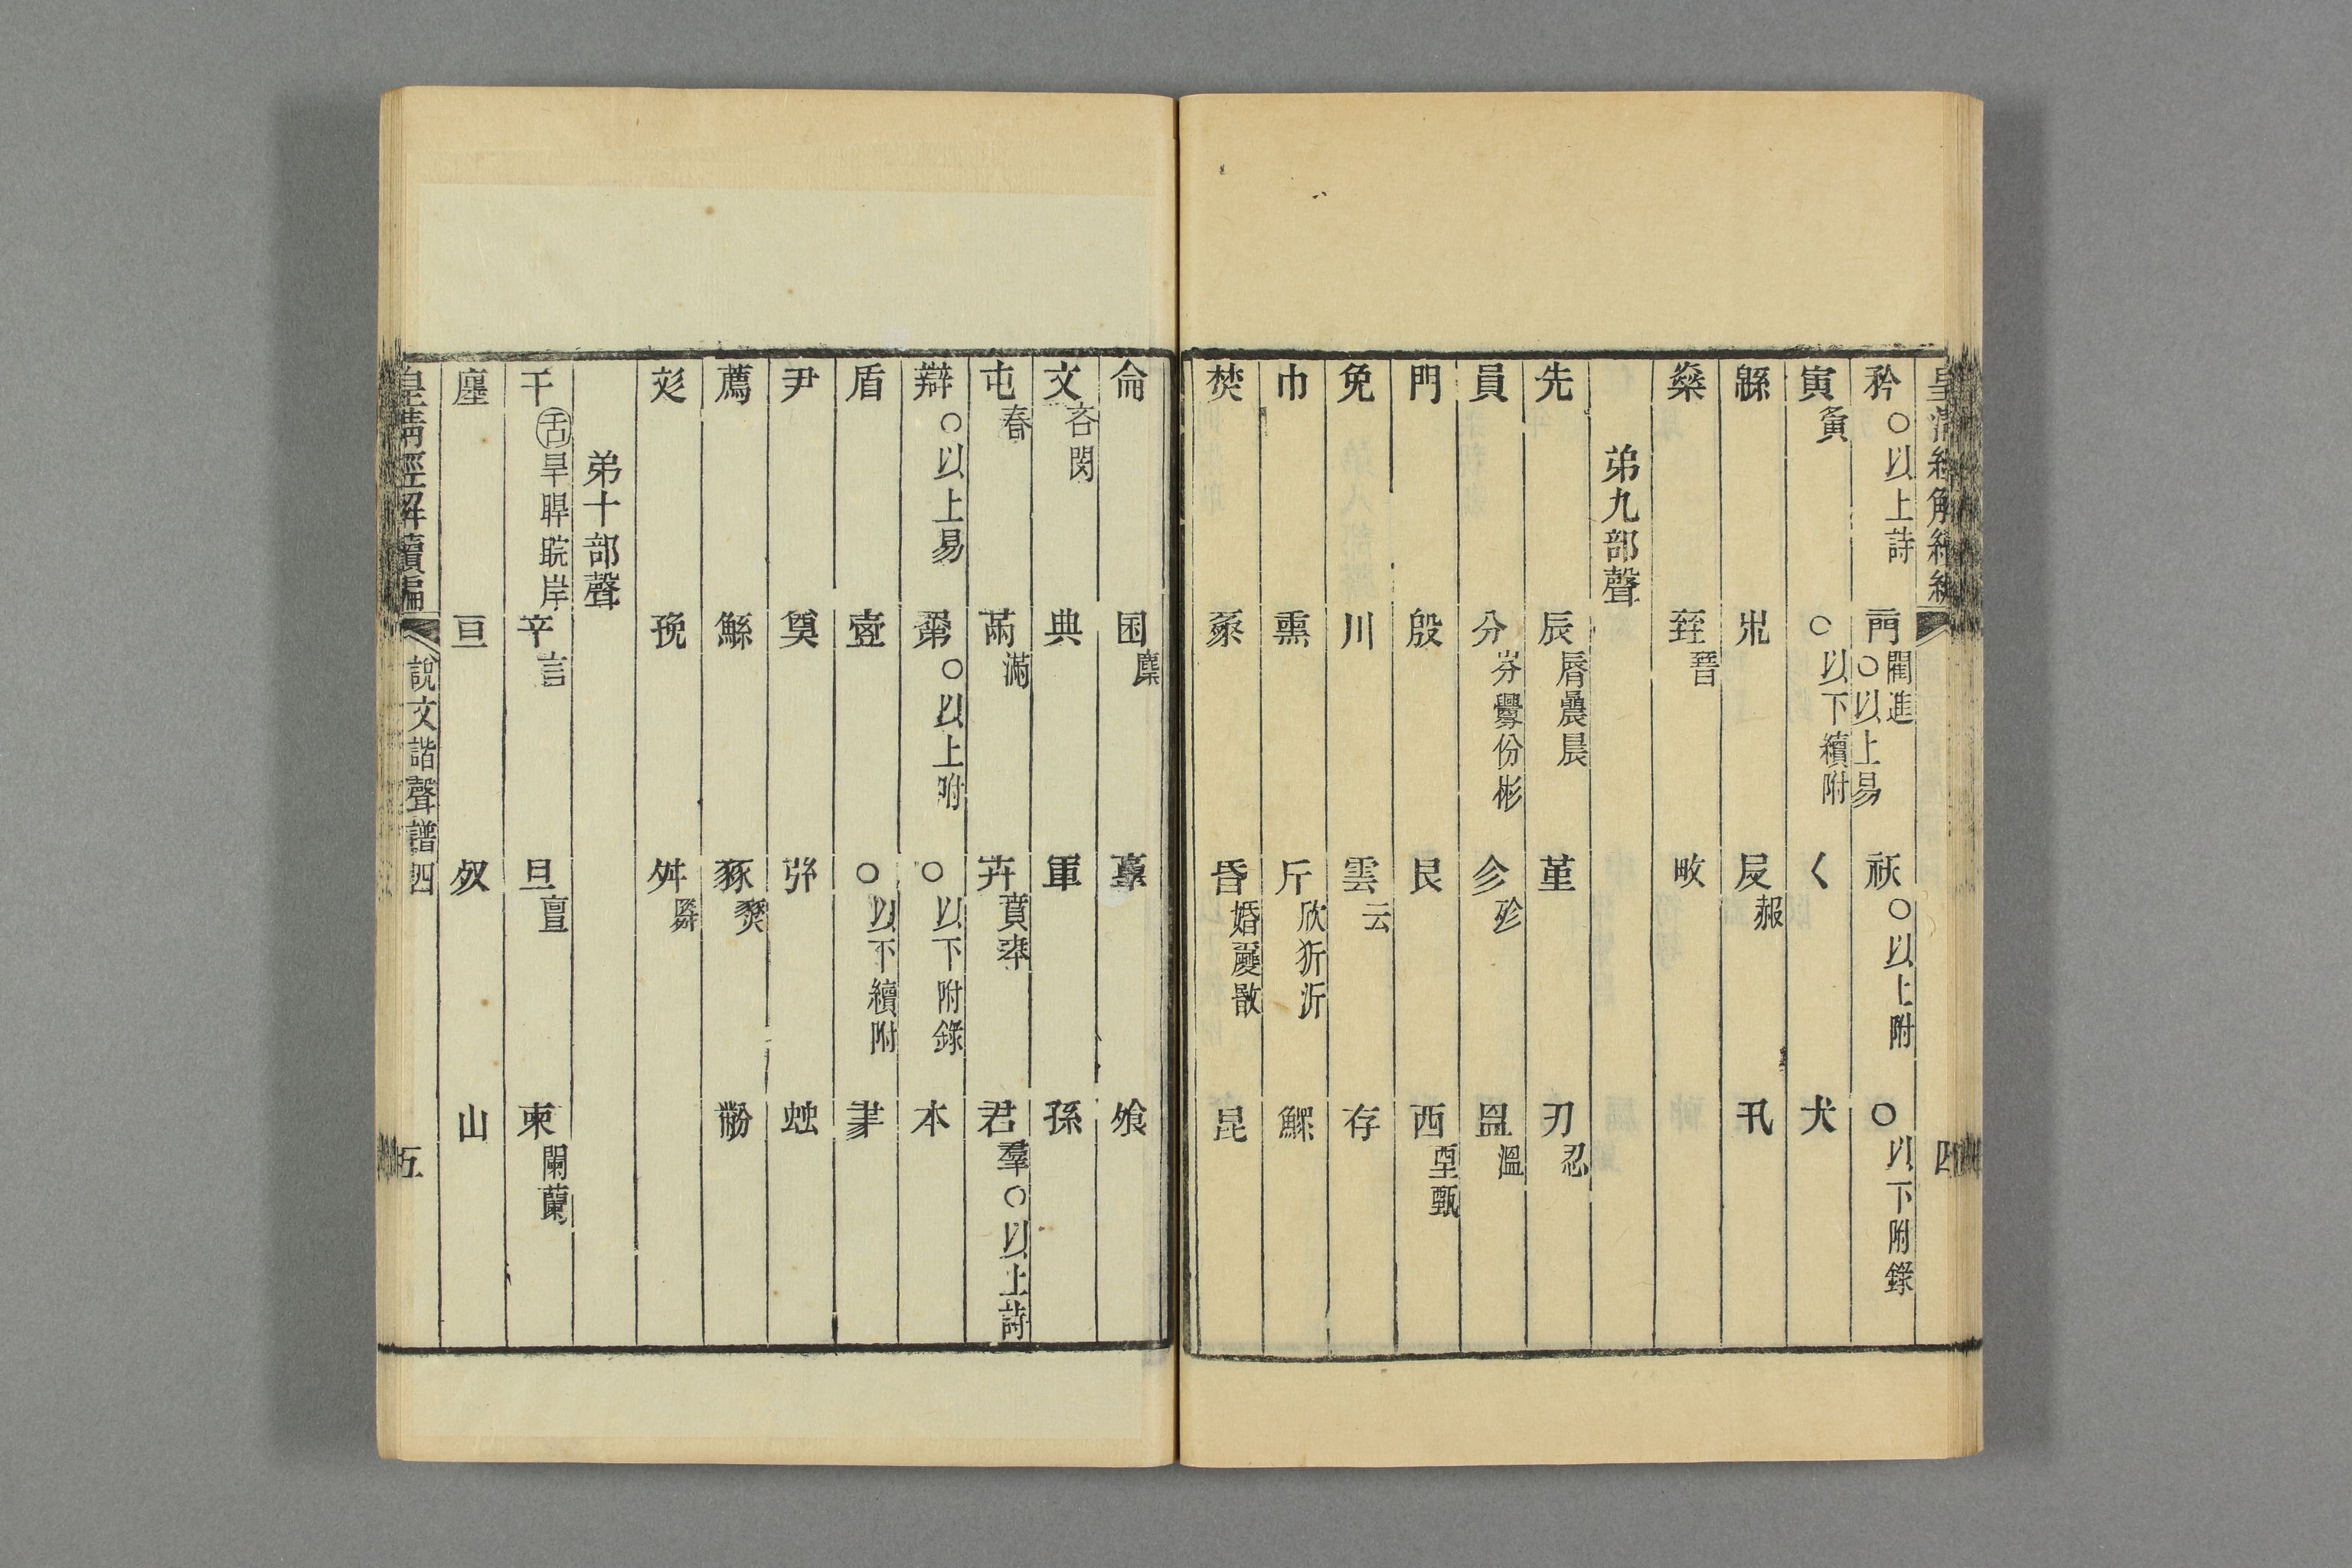 皇清經解續編
四
矜○以上詩 閵進○以上易 祆○以上附 ○以下附錄
寅夤 ○以下續附 〈 犬
緜 𠬝赧 卂
燊 臸晉 畋
弟九部聲
先 辰脣晨 堇 刃忍
員 分芬釁份彬 㐱殄 𥁕溫
門 殷 艮 西垔甄
免 川 雲云 存
巾 熏 斤欣狋沂 鰥
焚 豩 昏婚 昆
侖 困麇 飧
文吝閔 典 軍 孫
屯春 㒼滿 卉賁 君羣○以上詩
辯○以上易 ○以上附 ○以下附錄 本
盾 壼 ○以下續附
尹 奠 䖵
薦 鯀 豩燹
彣 㝃 舛粦
弟十部聲
干舌旱睅睆岸 䇂言 旦亶 柬闌蘭
廛 亘 𣦼 山
皇清經解續編 說文諧聲譜四
五